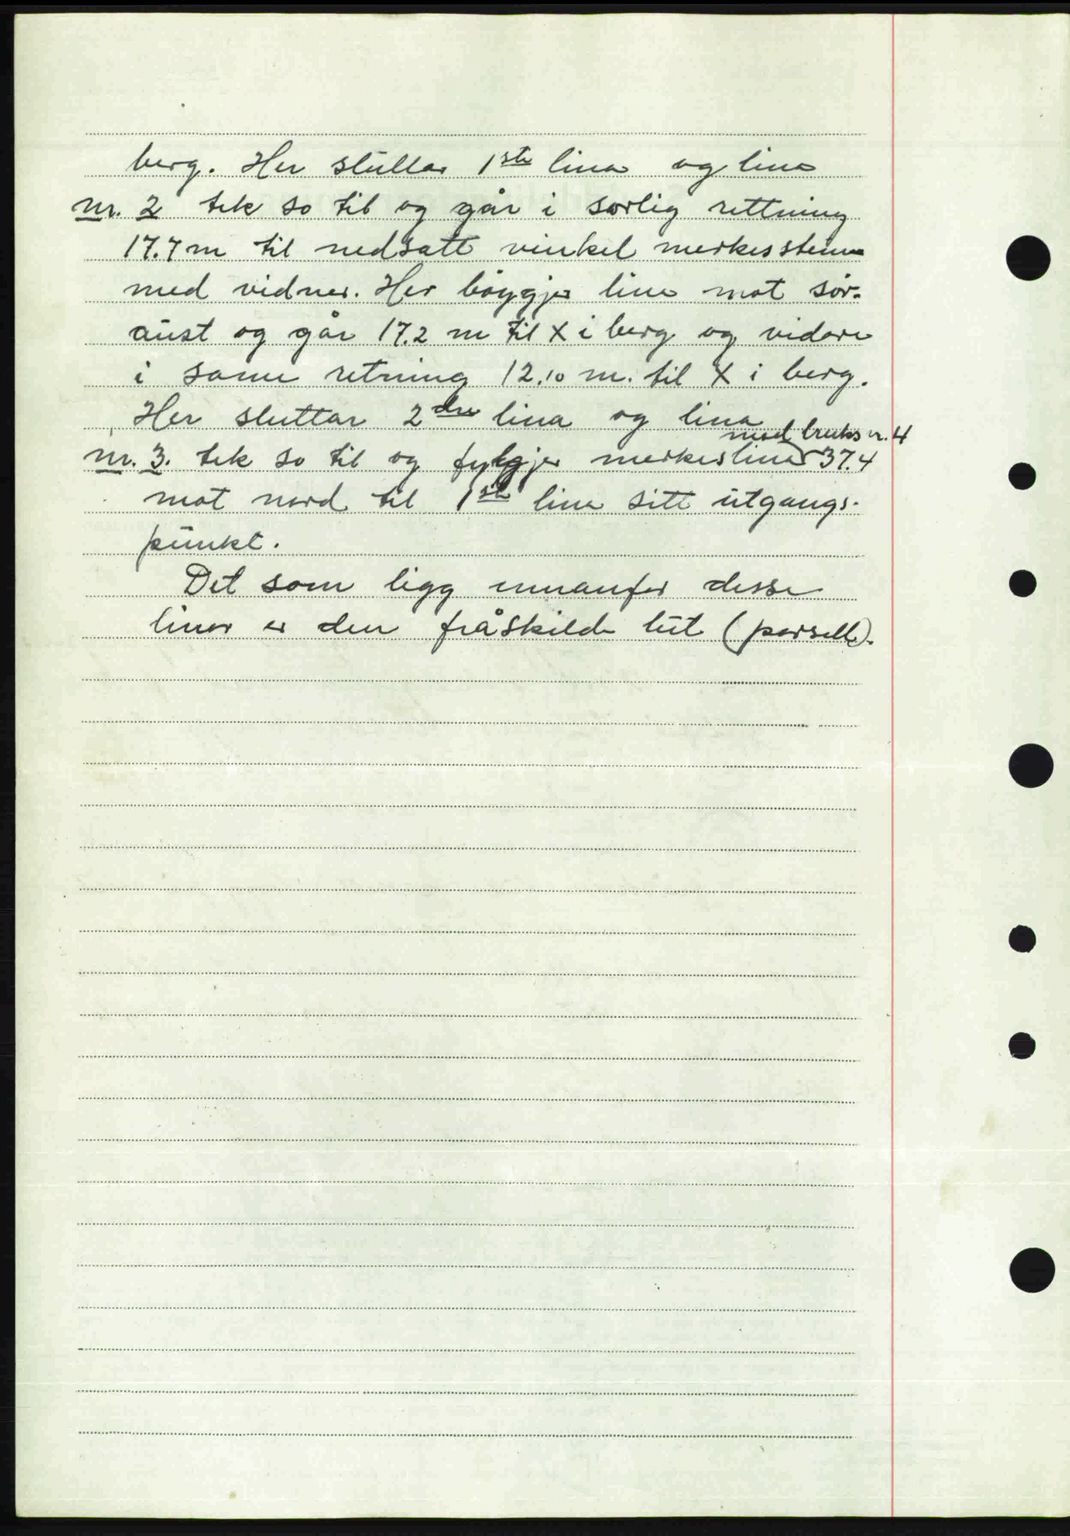 berg. Her sluttar 1ste lina og lina
nr. 2 tek so til og går i sørlig rettning
17.7 m til nedsatt vinkel merkesstein
med vidner. Her bøygjer lina mot sør-
aust og går 17.2 m til X i berg og vidare
i same retning 12.10 m. til X i berg.
Her sluttar 2dre lina og lina
med bruks nr. 4
nr. 3. tek so til og fylgjer merkeslina 37.4
mot nord til 1ste lina sitt utgangs-
punkt.
Det som ligg innanfor desse
linor er den fråskilde lut (parsell).